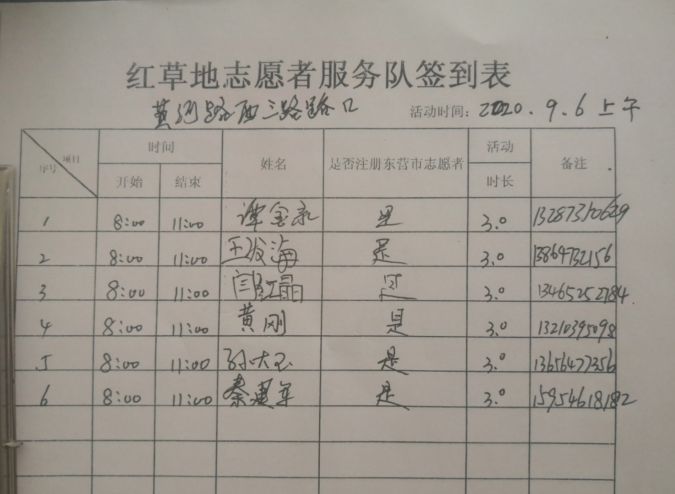 红草地志愿者服务队签到表
黄河路西三路路口 活动时间: 2020.9.6上午
序号 项目 时间 姓名 是否注册东营市志愿者 活动 备注
开始 结束 时长
1 8:00 11:00 谭金永 是 3.0
2 8:00 11:00 海 是 3.0 13864732156
3 8:00 11:00 闫红晶 是 3.0 13465252784
4 8:00 11:00 黄刚 是 3.0 13210395098
5 8:00 11:00 孙大玉 是 3.0 13656477356
6 8:00 11:00 秦建军 是 3.0 15954618182